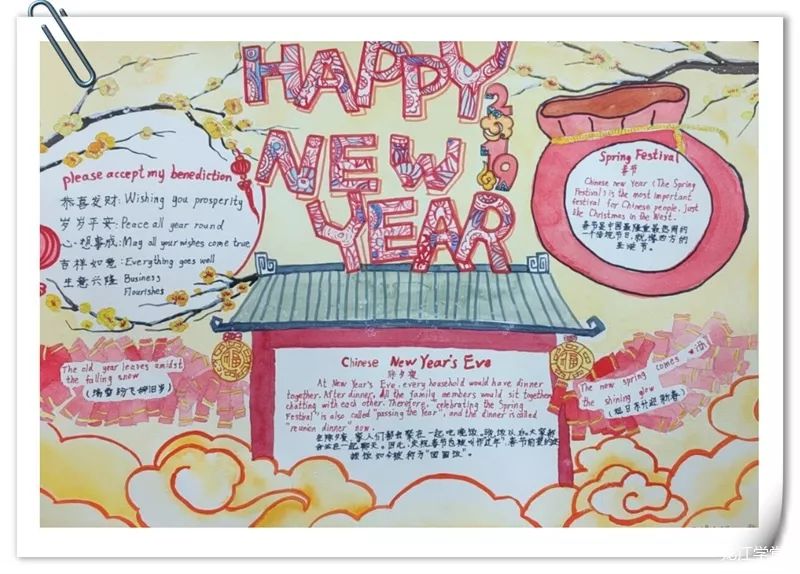 HAPPY
NEW
YEAR
2019
please accept my benediction
恭喜发财: Wishing you prosperity
岁岁平安: Peace all year round
心想事成: Mag all your wishes come true
吉祥如意: Everything goes well
生意兴隆 Business
Flourishes
Spring Festival
春节
Chinese new Year (The Spring
Festival) is the most important
festival for Chinese people, just
like Christmas in the West.
春节是中国最隆重最热闹的
一个传统节日,就像西方的
圣诞节。
The old year leaves amidst
the falling snow
(瑞雪纷飞辞旧岁)
福
Chinese New Year's Eve
除夕夜
At New Year's Eve, every household would have dinner
together. After dinner, all the family members would sit together
chatting with each other. Therefore, celebrating the Spring
Festival "is also called "passing the Year", and the dinner is called
"reunion dinner" now.
在除夕夜,家人们都会聚在一起吃晚饭。晚饭以后,大家都
会坐在一起聊天。因此,庆祝春节也被叫作"过年",春节前夕的
晚饭如今被称为"团圆饭"。
福
The new spring comes with
the shining glow
(旭日东升迎新春)
龙江学堂